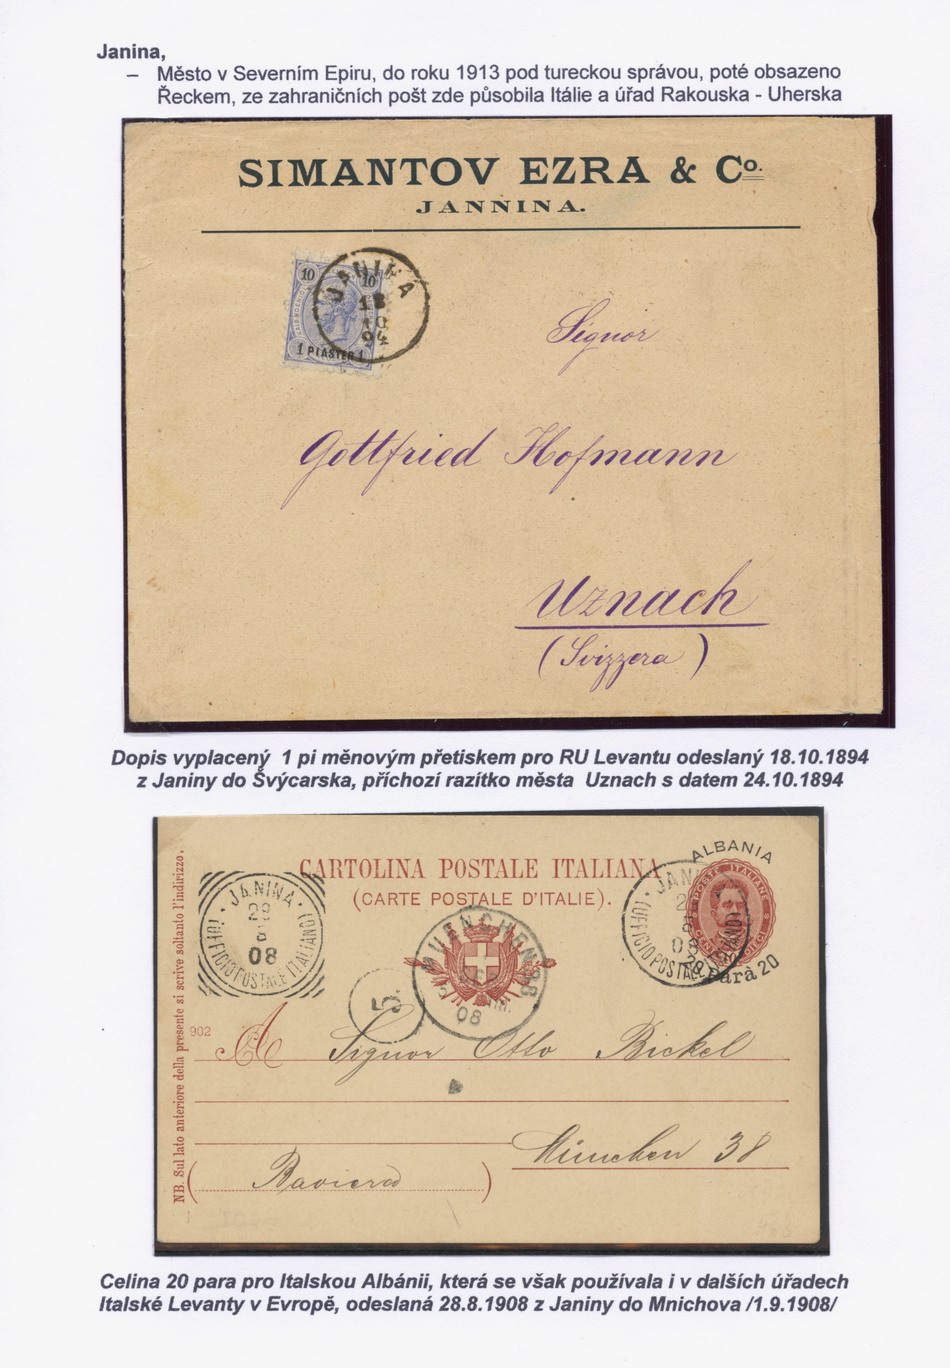 Janina,
– Město v Severním Epiru, do roku 1913 pod tureckou správou, poté obsazeno
Řeckem, ze zahraničních pošt zde působila Itálie a úřad Rakouska - Uherska
SIMANTOV EZRA & Co.
JANNINA.
10 10
1 PIASTER 1
JANINA
18
10
94
Signor
Gottfried Hofmann
Uznach
(Svizzera)
Dopis vyplacený 1 pi měnovým přetiskem pro RU Levantu odeslaný 18.10.1894
z Janiny do Švýcarska, příchozí razítko města Uznach s datem 24.10.1894
ALBANIA
CARTOLINA POSTALE ITALIANA
(CARTE POSTALE D'ITALIE).
POSTE ITALIANE
Parà 20
JANINA
29
8
08
(UFFICIO POSTALE ITALIANO)
JANINA
08
(UFFICIO POSTALE ITALIANO)
MUENCHEN
08
5.
902
A Signor Otto Bickel
München 38
(Baviera)
NB. Sul lato anteriore della presente si scrive soltanto l'indirizzo.
Celina 20 para pro Italskou Albánii, která se však používala i v dalších úřadech
Italské Levanty v Evropě, odeslaná 28.8.1908 z Janiny do Mnichova /1.9.1908/